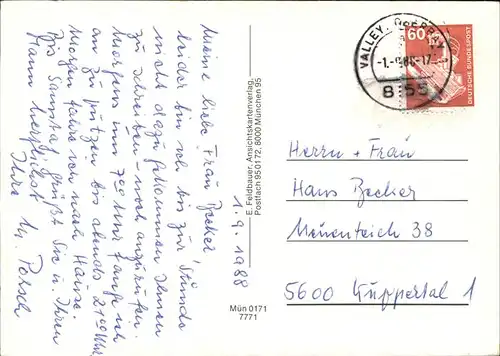 1.9.1988
Meine liebe Frau Becker
leider bin ich bis zur Stunde
nicht dazu gekommen Ihnen
zu schreiben – noch anzurufen.
Morgens um 7⁰⁰ Uhr fange ich
an zu putzen bis abends 21⁰⁰ Uhr.
Morgen fahre ich nach Hause.
Bis Samstag grüßt Sie u. Ihren
Mann herzlichst
Ihre
E. Feldbauer, Ansichtskartenverlag,
Postfach 950172, 8000 München 95
Mün 0171
7771
VALLEY, OBERBAY
8155
60
DEUTSCHE BUNDESPOST
Herrn + Frau
Hans Becker
Meuenteich 38
5600 Wuppertal 1